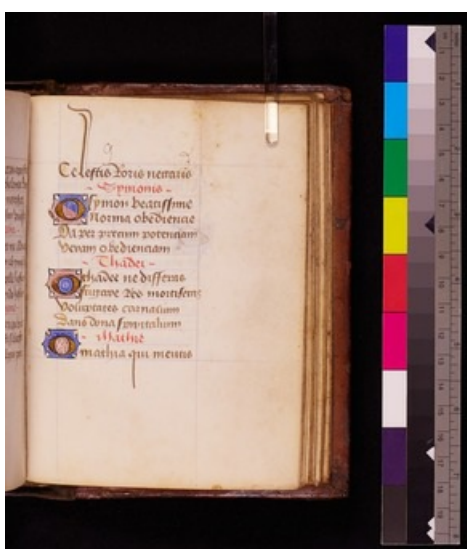 Celestis Roris nectaris
Symonis
O symon beatissime
Norma obediencie
Da per precum potenciam
Veram obedienciam
Thadei
O thadee ne differas
fugare Res mortiferas
Voluptates carnalium
Dans dona spiritalium
Mathie
O mathia qui mentis